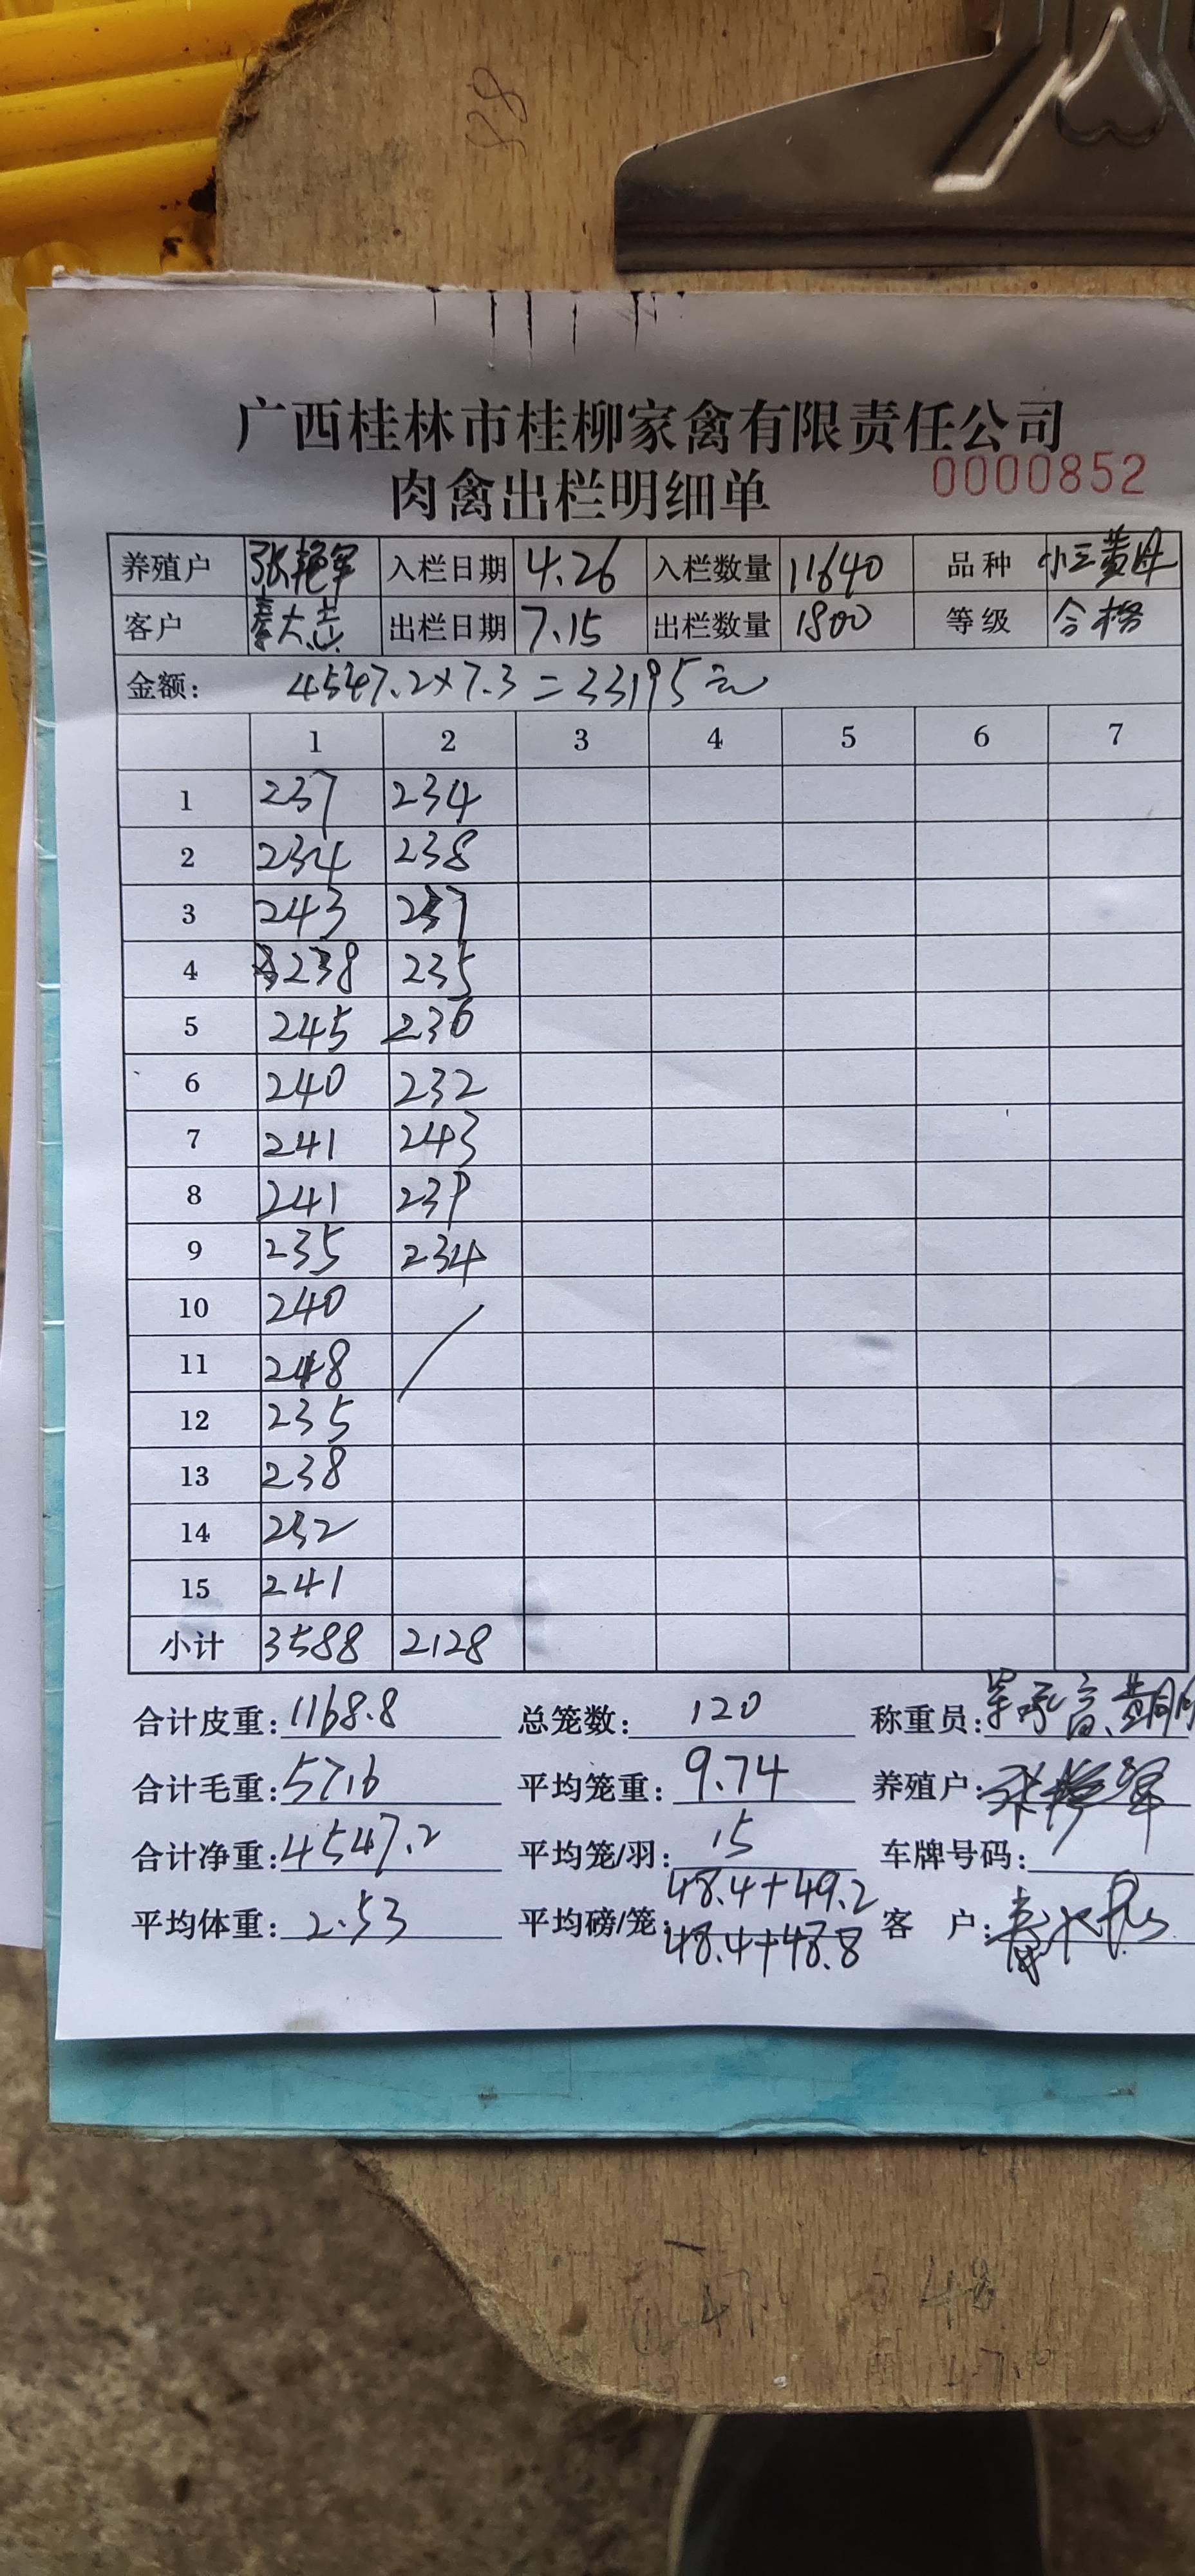 广西桂林市桂柳家禽有限责任公司
肉禽出栏明细单 0000852
养殖户 张艳军 入栏日期 4.26 入栏数量 11640 品种 小三黄母
客户 秦大志 出栏日期 7.15 出栏数量 1800 等级 合格
金额: 4547.2×7.3=33195元
1 2 3 4 5 6 7
1 237 234
2 234 238
3 243 237
4 238 235
5 245 236
6 240 232
7 241 243
8 241 239
9 235 234
10 240
11 248
12 235
13 238
14 232
15 241
小计 3588 2128
合计皮重: 1168.8 总笼数: 120 称重员:
合计毛重: 5716 平均笼重: 9.74 养殖户: 张艳军
合计净重: 4547.2 平均笼/羽: 15 车牌号码:
平均体重: 2.53 平均磅/笼: 48.4+49.2 客 户:
48.4+48.8